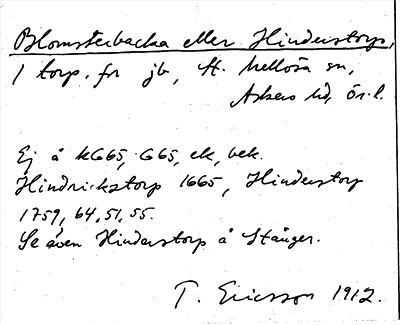 Blomsterbacka eller Hinderstorp,
1 torp. fr jb, St. Mellösa sn,
Askers hd, Ör. l.
Ej å KG65, G65, ek, bek.
Hindrickztorp 1665, Hinderstorp
1759, 64, 51, 55.
Se även Hinderstorp å Stånger.
T. Ericsson 1912.